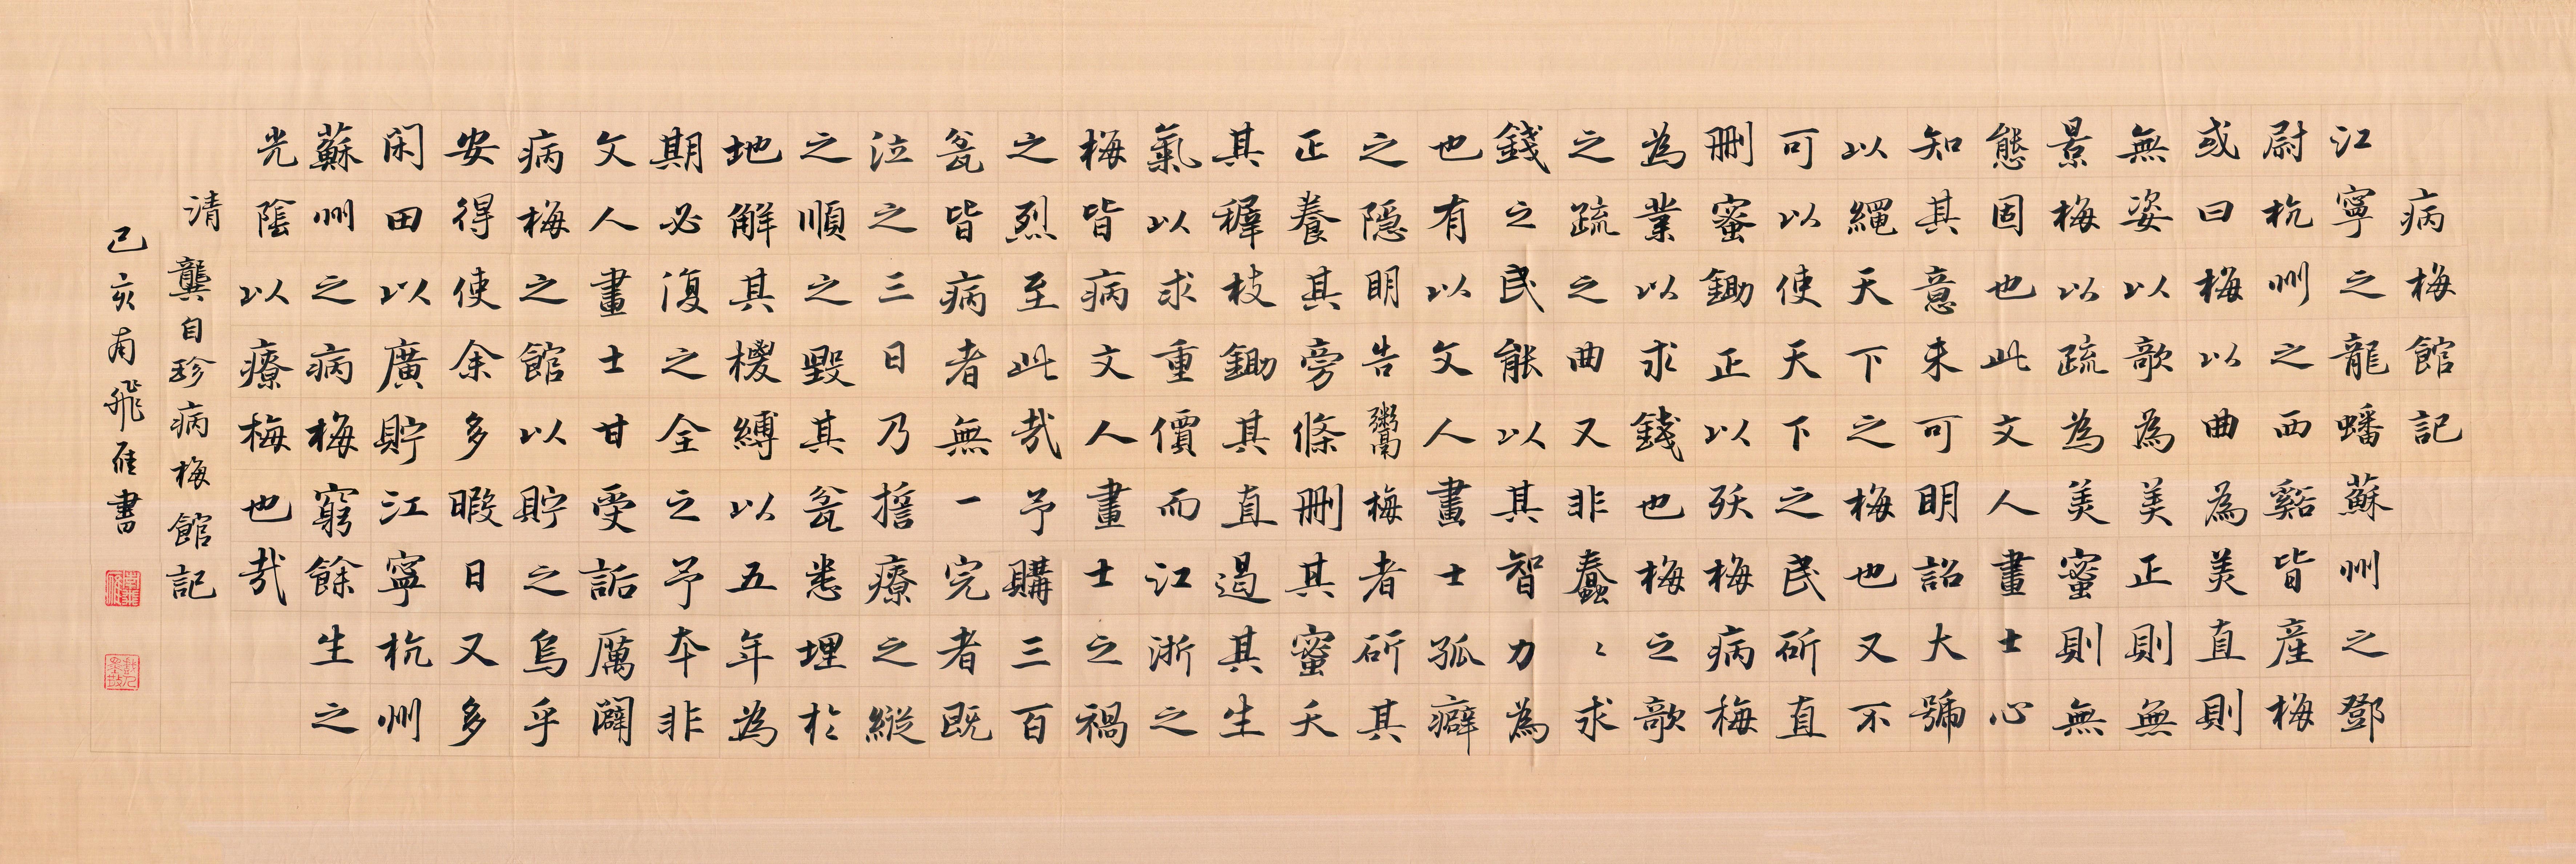 病梅館記
江寧之龍蟠蘇州之鄧
尉杭州之西谿皆產梅
或曰梅以曲為美直則
無姿以欹為美正則無
景梅以疏為美蜜則無
態固也此文人畫士心
知其意未可明詔大號
以繩天下之梅也又不
可以使天下之民斫直
刪蜜鋤正以殀梅病梅
為業以求錢也梅之欹
之疏之曲又非蠢〻求
錢之民能以其智力為
也有以文人畫士孤癖
之隱明告鬻梅者斫其
正養其旁條刪其蜜夭
其稺枝鋤其直遏其生
氣以求重價而江浙之
梅皆病文人畫士之禍
之烈至此哉予購三百
瓮皆病者無一完者既
泣之三日乃誓療之縱
之順之毀其瓮悉埋於
地解其椶縛以五年為
期必復之全之予本非
文人畫士甘受詬厲闢
病梅之館以貯之烏乎
安得使余多暇日又多
閑田以廣貯江寧杭州
蘇州之病梅窮餘生之
光陰以療梅也哉
清
龔自珍病梅館記
己亥南飛雁書